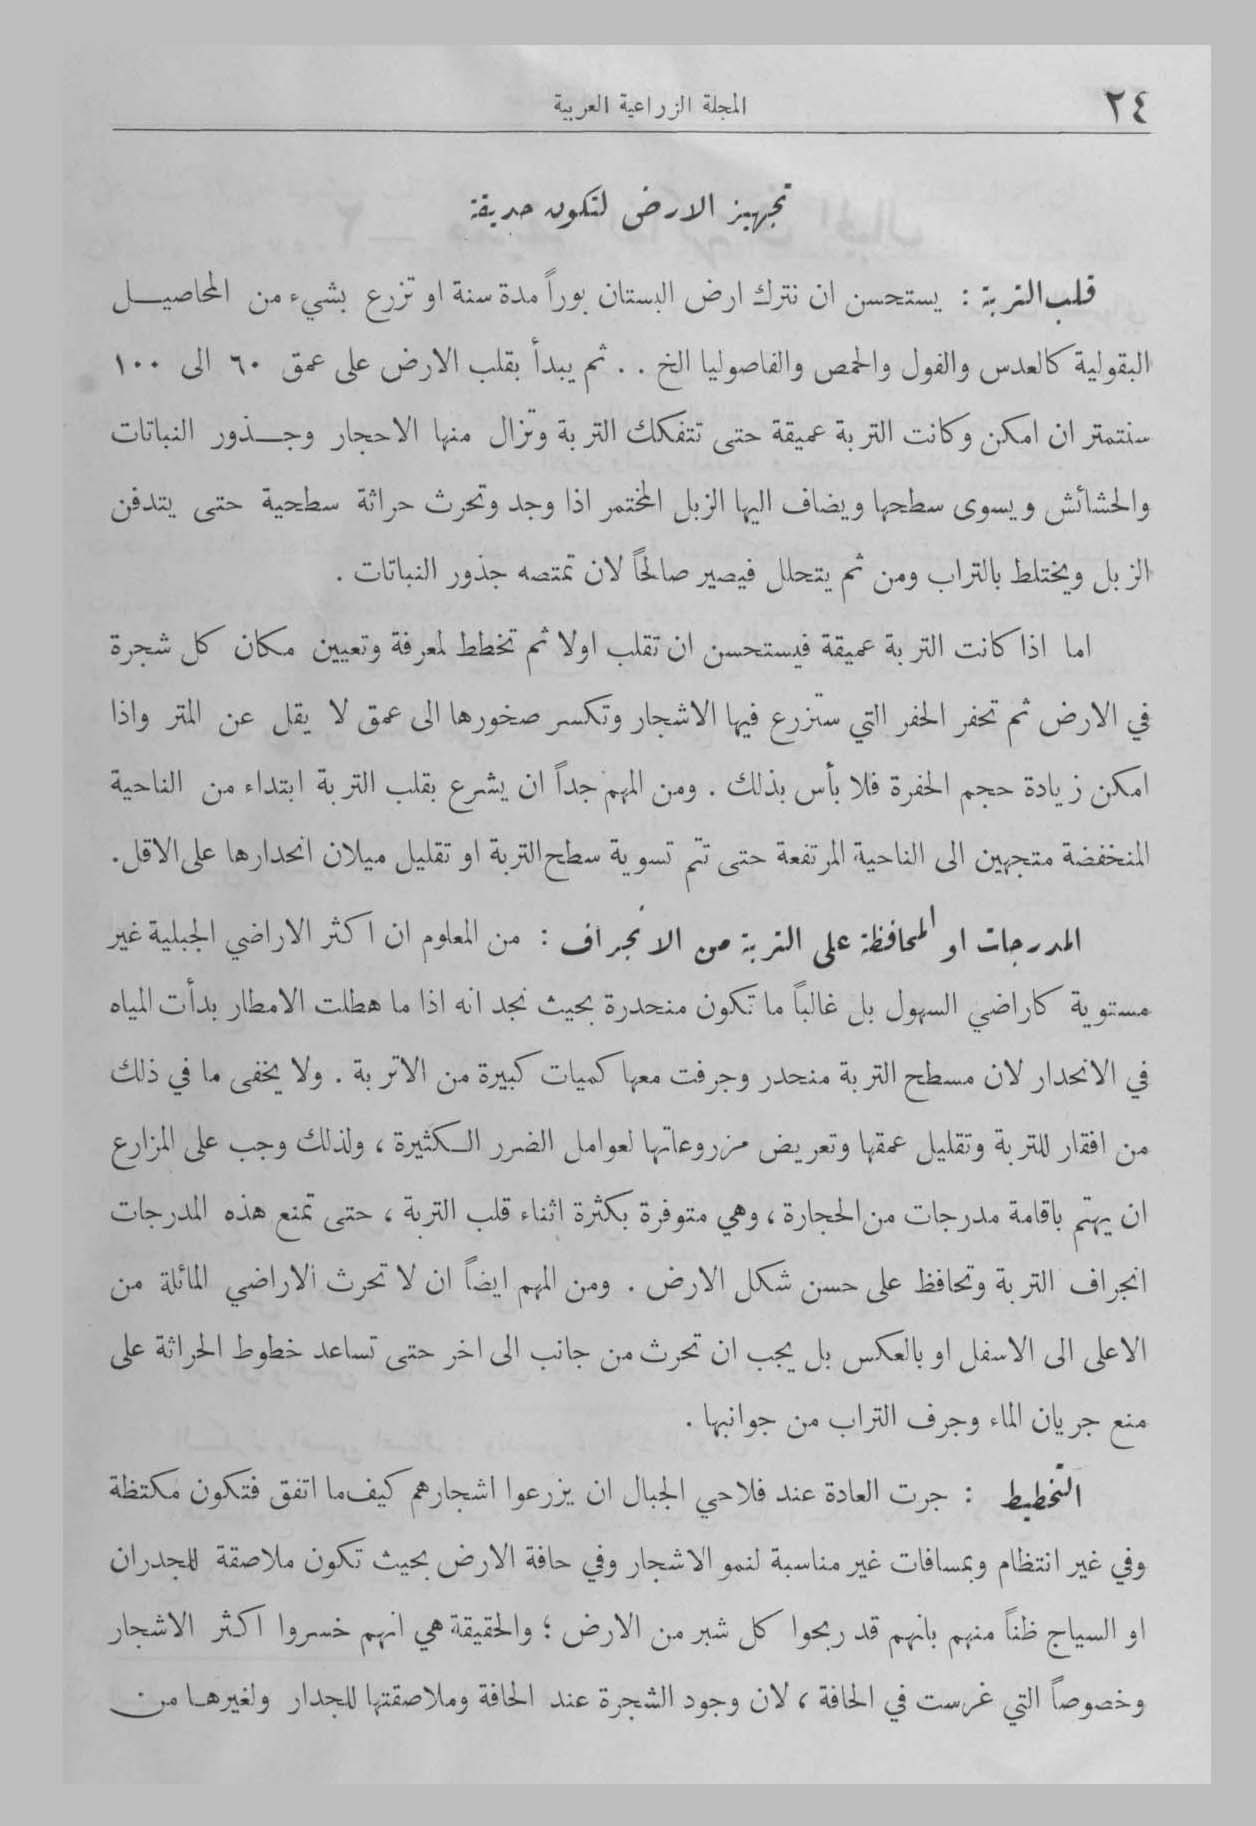 ٢٤
المجلة الزراعية العربية
تجهيز الارض لتكون حديقة
قلب التربة : يستحسن ان نترك ارض البستان بوراً مدة سنة او تزرع بشيء من المحاصيل
البقولية كالعدس والفول والحمص والفاصوليا الخ . . ثم يبدأ بقلب الارض على عمق ٦٠ الى ١٠٠
سنتمتر ان امكن وكانت التربة عميقة حتى تتفكك التربة وتزال منها الاحجار وجذور النباتات
والحشائش ويسوى سطحها ويضاف اليها الزبل المختمر اذا وجد وتحرث حراثة سطحية حتى يتدفن
الزبل ويختلط بالتراب ومن ثم يتحلل فيصير صالحاً لان تمتصه جذور النباتات .
اما اذا كانت التربة عميقة فيستحسن ان تقلب اولا ثم تخطط لمعرفة وتعيين مكان كل شجرة
في الارض ثم تحفر الحفر التي ستزرع فيها الاشجار وتكسر صخورها الى عمق لا يقل عن المتر واذا
امكن زيادة حجم الحفرة فلا بأس بذلك . ومن المهم جداً ان يشرع بقلب التربة ابتداء من الناحية
المنخفضة متجهين الى الناحية المرتفعة حتى تتم تسوية سطح التربة او تقليل ميلان انحدارها على الاقل.
المدرجات او المحافظة على التربة من الانجراف : من المعلوم ان اكثر الاراضي الجبلية غير
مستوية كاراضي السهول بل غالباً ما تكون منحدرة بحيث نجد انه اذا ما هطلت الامطار بدأت المياه
في الانحدار لان مسطح التربة منحدر وجرفت معها كميات كبيرة من الاتربة . ولا يخفى ما في ذلك
من افقار للتربة وتقليل عمقها وتعريض مزروعاتها لعوامل الضرر الكثيرة ، ولذلك وجب على المزارع
ان يهتم باقامة مدرجات من الحجارة ، وهي متوفرة بكثرة اثناء قلب التربة ، حتى تمنع هذه المدرجات
انجراف التربة وتحافظ على حسن شكل الارض . ومن المهم ايضاً ان لا تحرث الاراضي المائلة من
الاعلى الى الاسفل او بالعكس بل يجب ان تحرث من جانب الى اخر حتى تساعد خطوط الحراثة على
منع جريان الماء وجرف التراب من جوانبها .
التخطيط : جرت العادة عند فلاحي الجبال ان يزرعوا اشجارهم كيف ما اتفق فتكون مكتظة
وفي غير انتظام وبمسافات غير مناسبة لنمو الاشجار وفي حافة الارض بحيث تكون ملاصقة للجدران
او السياج ظناً منهم بانهم قد ربحوا كل شبر من الارض ؛ والحقيقة هي انهم خسروا اكثر الاشجار
وخصوصاً التي غرست في الحافة ، لان وجود الشجرة عند الحافة وملاصقتها للجدار ولغيرها من